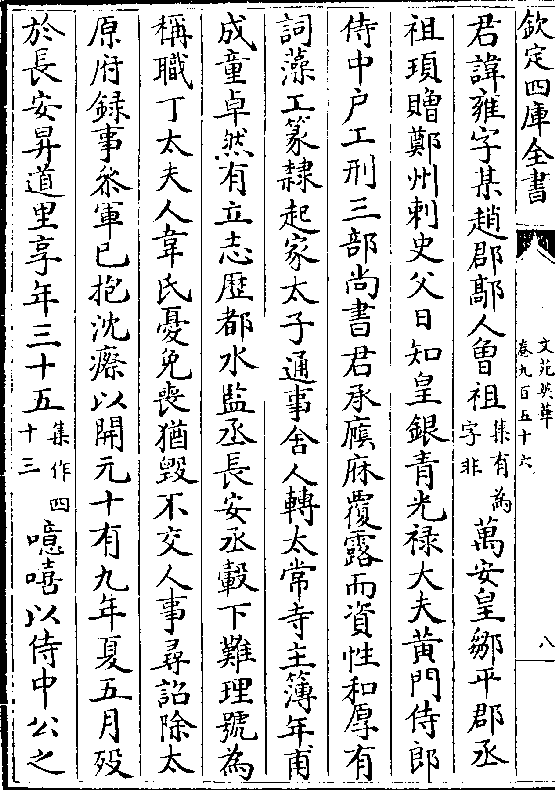 欽定四庫全書
文苑英華
卷九百五十六
八
君諱雍字某趙郡鄗人曾祖集有為字非萬安皇鄒平郡丞
祖頊贈鄭州刺史父日知皇銀青光禄大夫黄門侍郎
侍中户工刑三部尚書君承厥庥覆露而資性和厚有
詞藻工篆隸起家太子通事舍人轉太常寺主簿年甫
成童卓然有立志歴都水監丞長安丞轂下難理號為
稱職丁太夫人韋氏憂免喪猶毁不交人事尋詔除太
原府録事叅軍已抱沈瘵以開元十有九年夏五月殁
於長安昇道里享年三十五集作四十三噫嘻以侍中公之